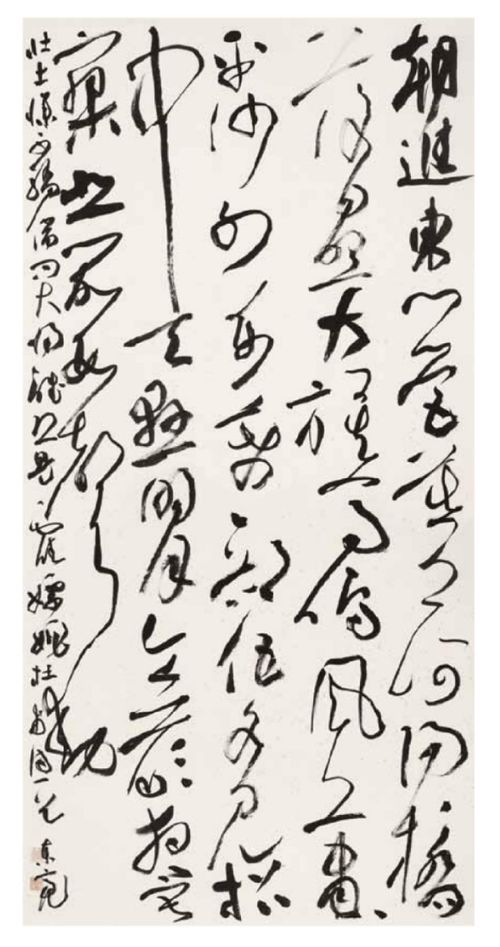 朝進東門營暮上河陽橋
落日照大旗馬鳴風蕭蕭
平沙列萬幕部伍各見招
中天懸明月令嚴夜寂
寥悲笳數聲動
壯士慘不驕借問大將誰恐是霍嫖姚杜甫詩一首